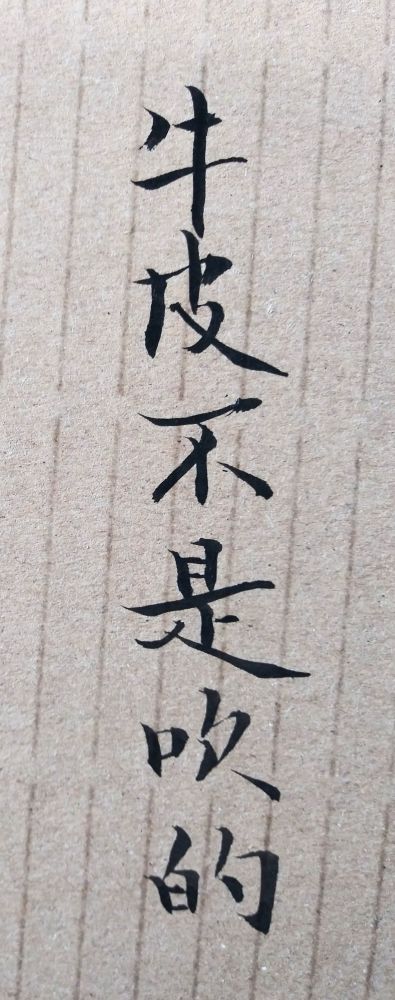 牛皮不是吹的